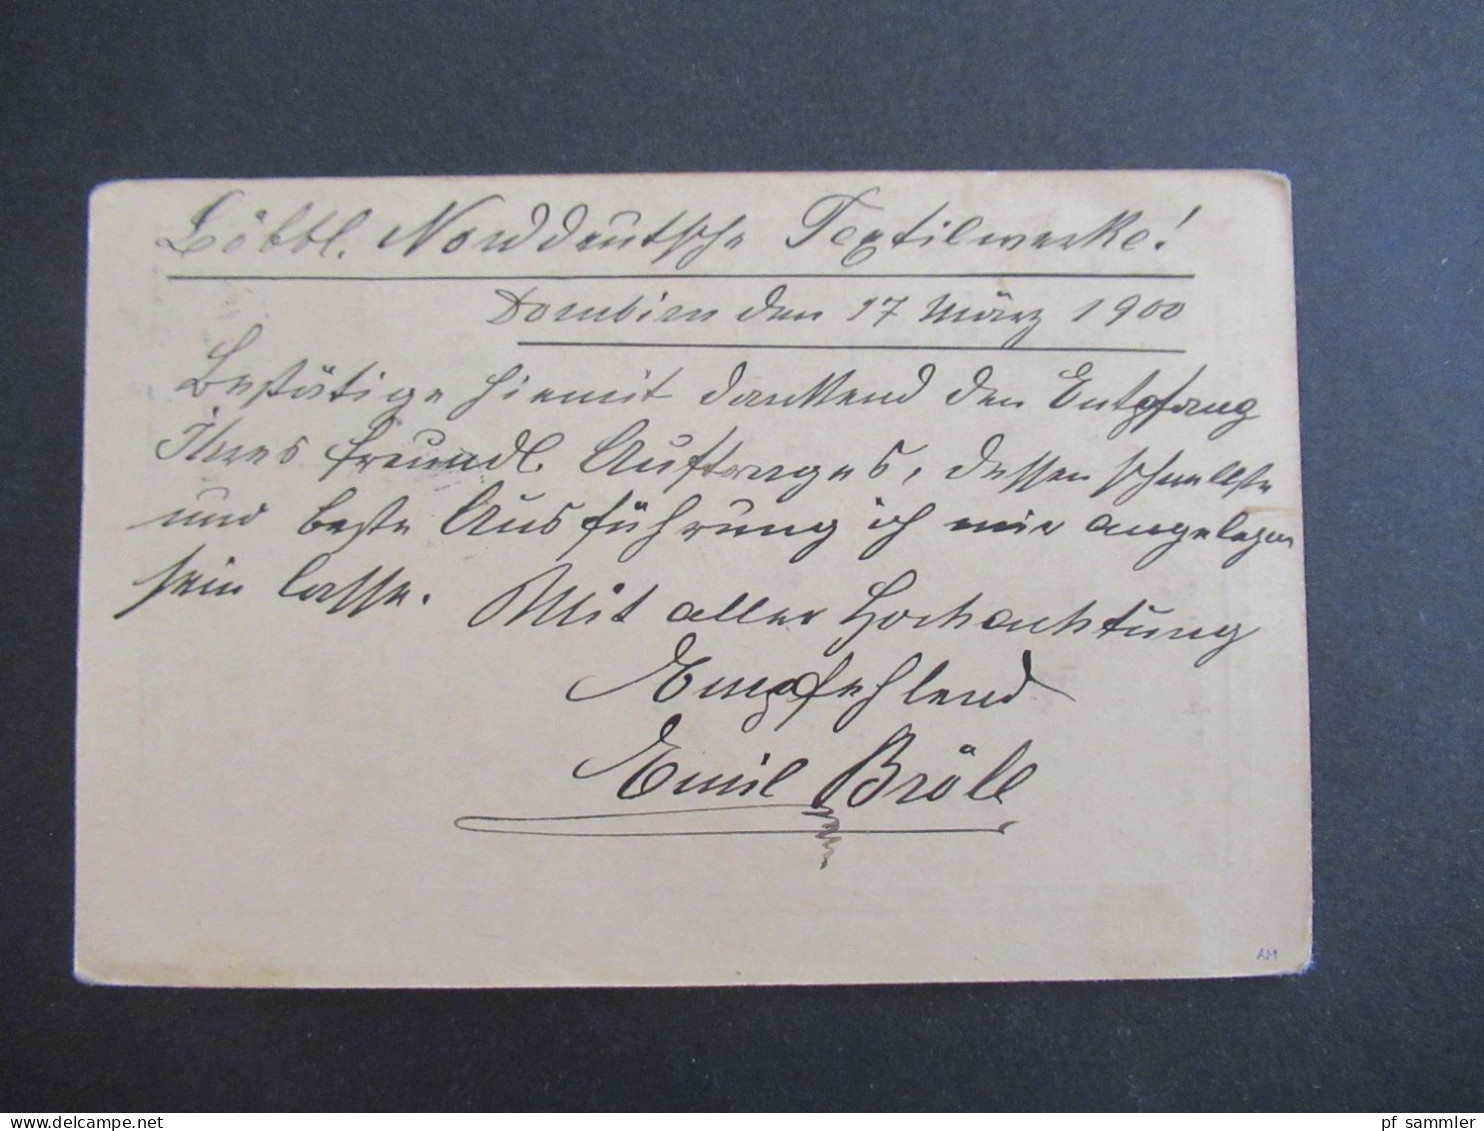 Löbtl. Norddeutsche Textilwerke!
Dornbirn den 17 März 1900
Bestätige hiemit dankend den Entpfang
Ihres freundl. Auftrages, dessen schnellste
und beste Ausführung ich mir angelegen
sein lasse. Mit aller Hochachtung
Empfehlend
Emil Bröll
AM
pf_sammler